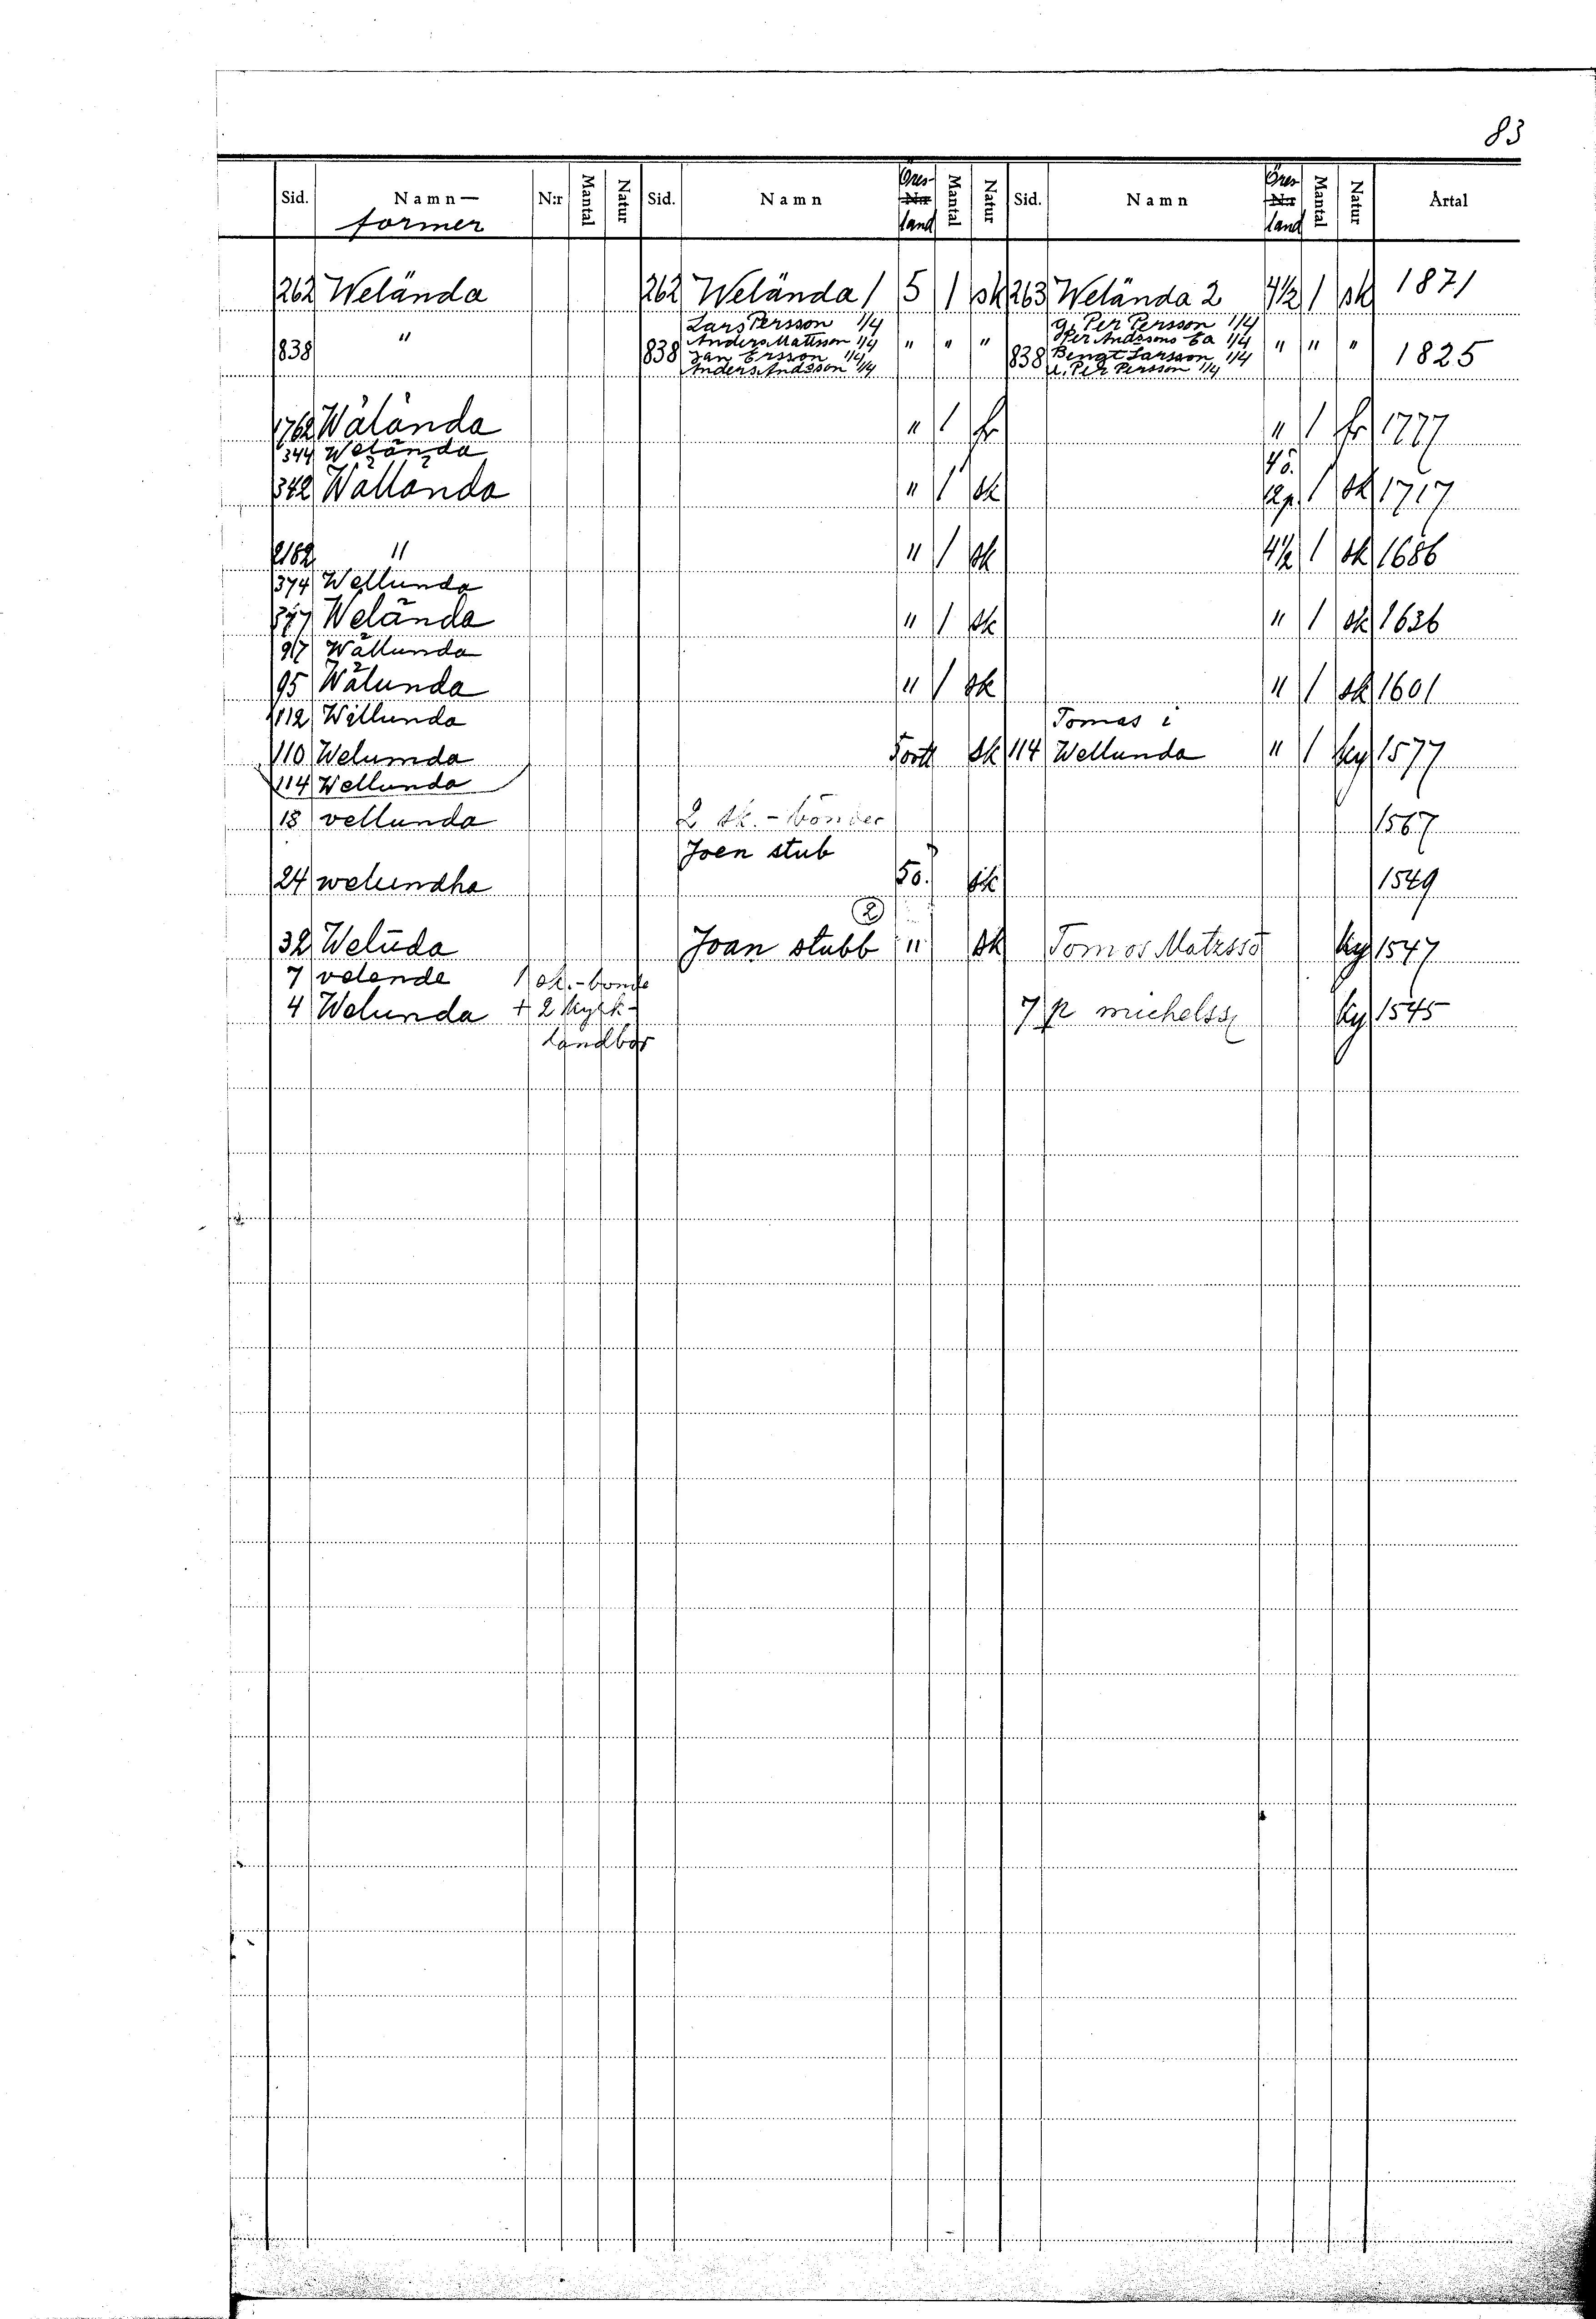 83
Sid. Namn— former N:r Mantal Natur Sid. Namn Öres- N:r land Mantal Natur Sid. Namn Öres N:r land Mantal Natur Årtal
262 Welända 262 Welända 1 5 1 sk 263 Welända 2 4½ 1 sk 1871
Lars Persson 1/4 g. Per Persson 1/4
838 " 838 Anders Mattsson 1/4 " " " Per Andssons Ea 1/4 " " " 1825
Jan Ersson 1/4 838 Bengt Larsson 1/4
Anders Andsson 1/4 u. Per Persson 1/4
1762 Wälända " 1 fr " 1 fr 1777
344 Welända 4ö.
342 Wällända " 1 sk 12p. 1 sk 1717
2182 " " 1 sk 4½ 1 sk 1686
374 Wellunda
377 Welända " 1 sk " 1 sk 1636
97 Wällunda
95 Wälunda " 1 sk " 1 sk 1601
112 Willunda Tomas i
110 Welumda 5örtl sk 114 Wellunda " 1 ky 1577
114 Wellunda
18 vellunda 2 sk.-bönder 1567
Joen stub
24 welundha 5ö. sk 1549
2
32 Welūda Joan stubb " sk Tomos Matzssō ky 1547
7 velende 1 sk.-bonde
4 Welunda + 2 kyrk- 7 p michelss ky 1545
landbor